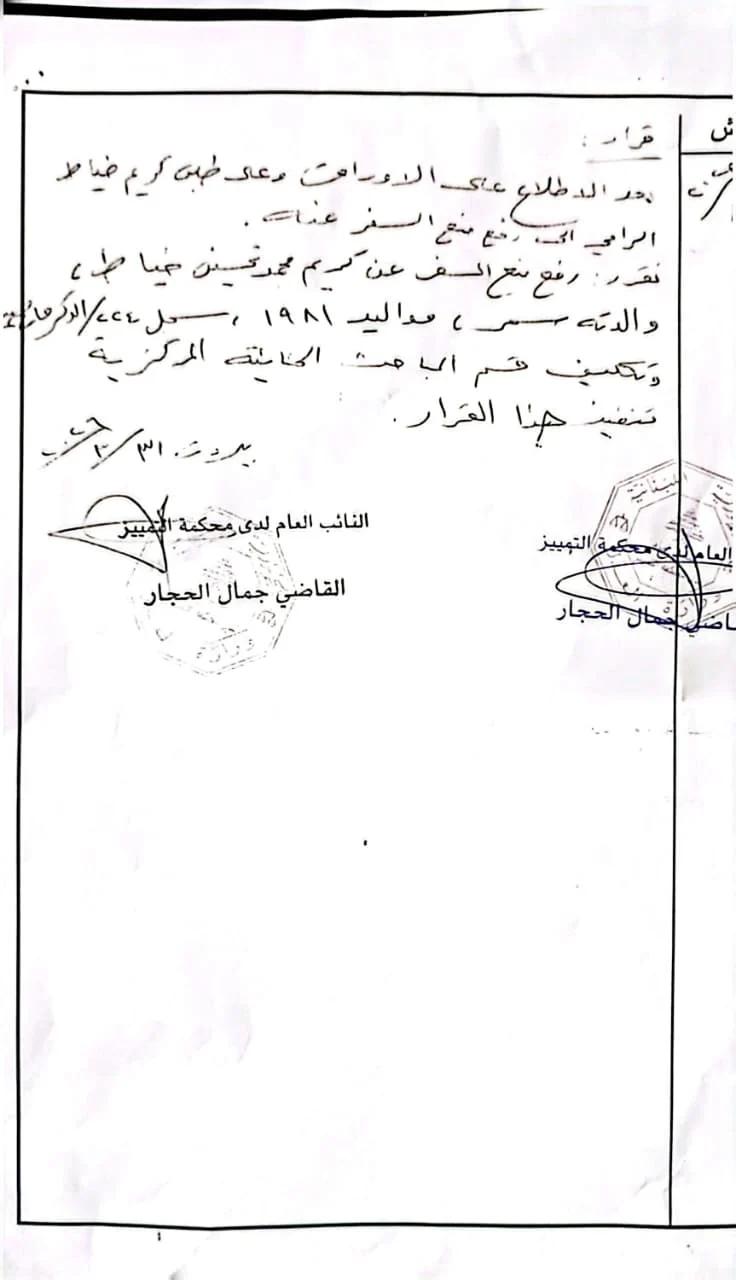 قرار :
بعد الاطلاع على الاوراق وعلى طلب كريم خياط
الرامي الى رفع منع السفر عنه .
نقرر: رفع منع السفر عن كريم محمد تحسين خياط ،
والدته سمر ، مواليد ١٩٨١ ، سجل ٢٢٤/
وتكليف قسم المباحث الجنائية المركزية
تنفيذ هذا القرار .
بيروت ٣١/٣/
النائب العام لدى محكمة التمييز
القاضي جمال الحجار
العام لدى محكمة التمييز
جمال الحجار